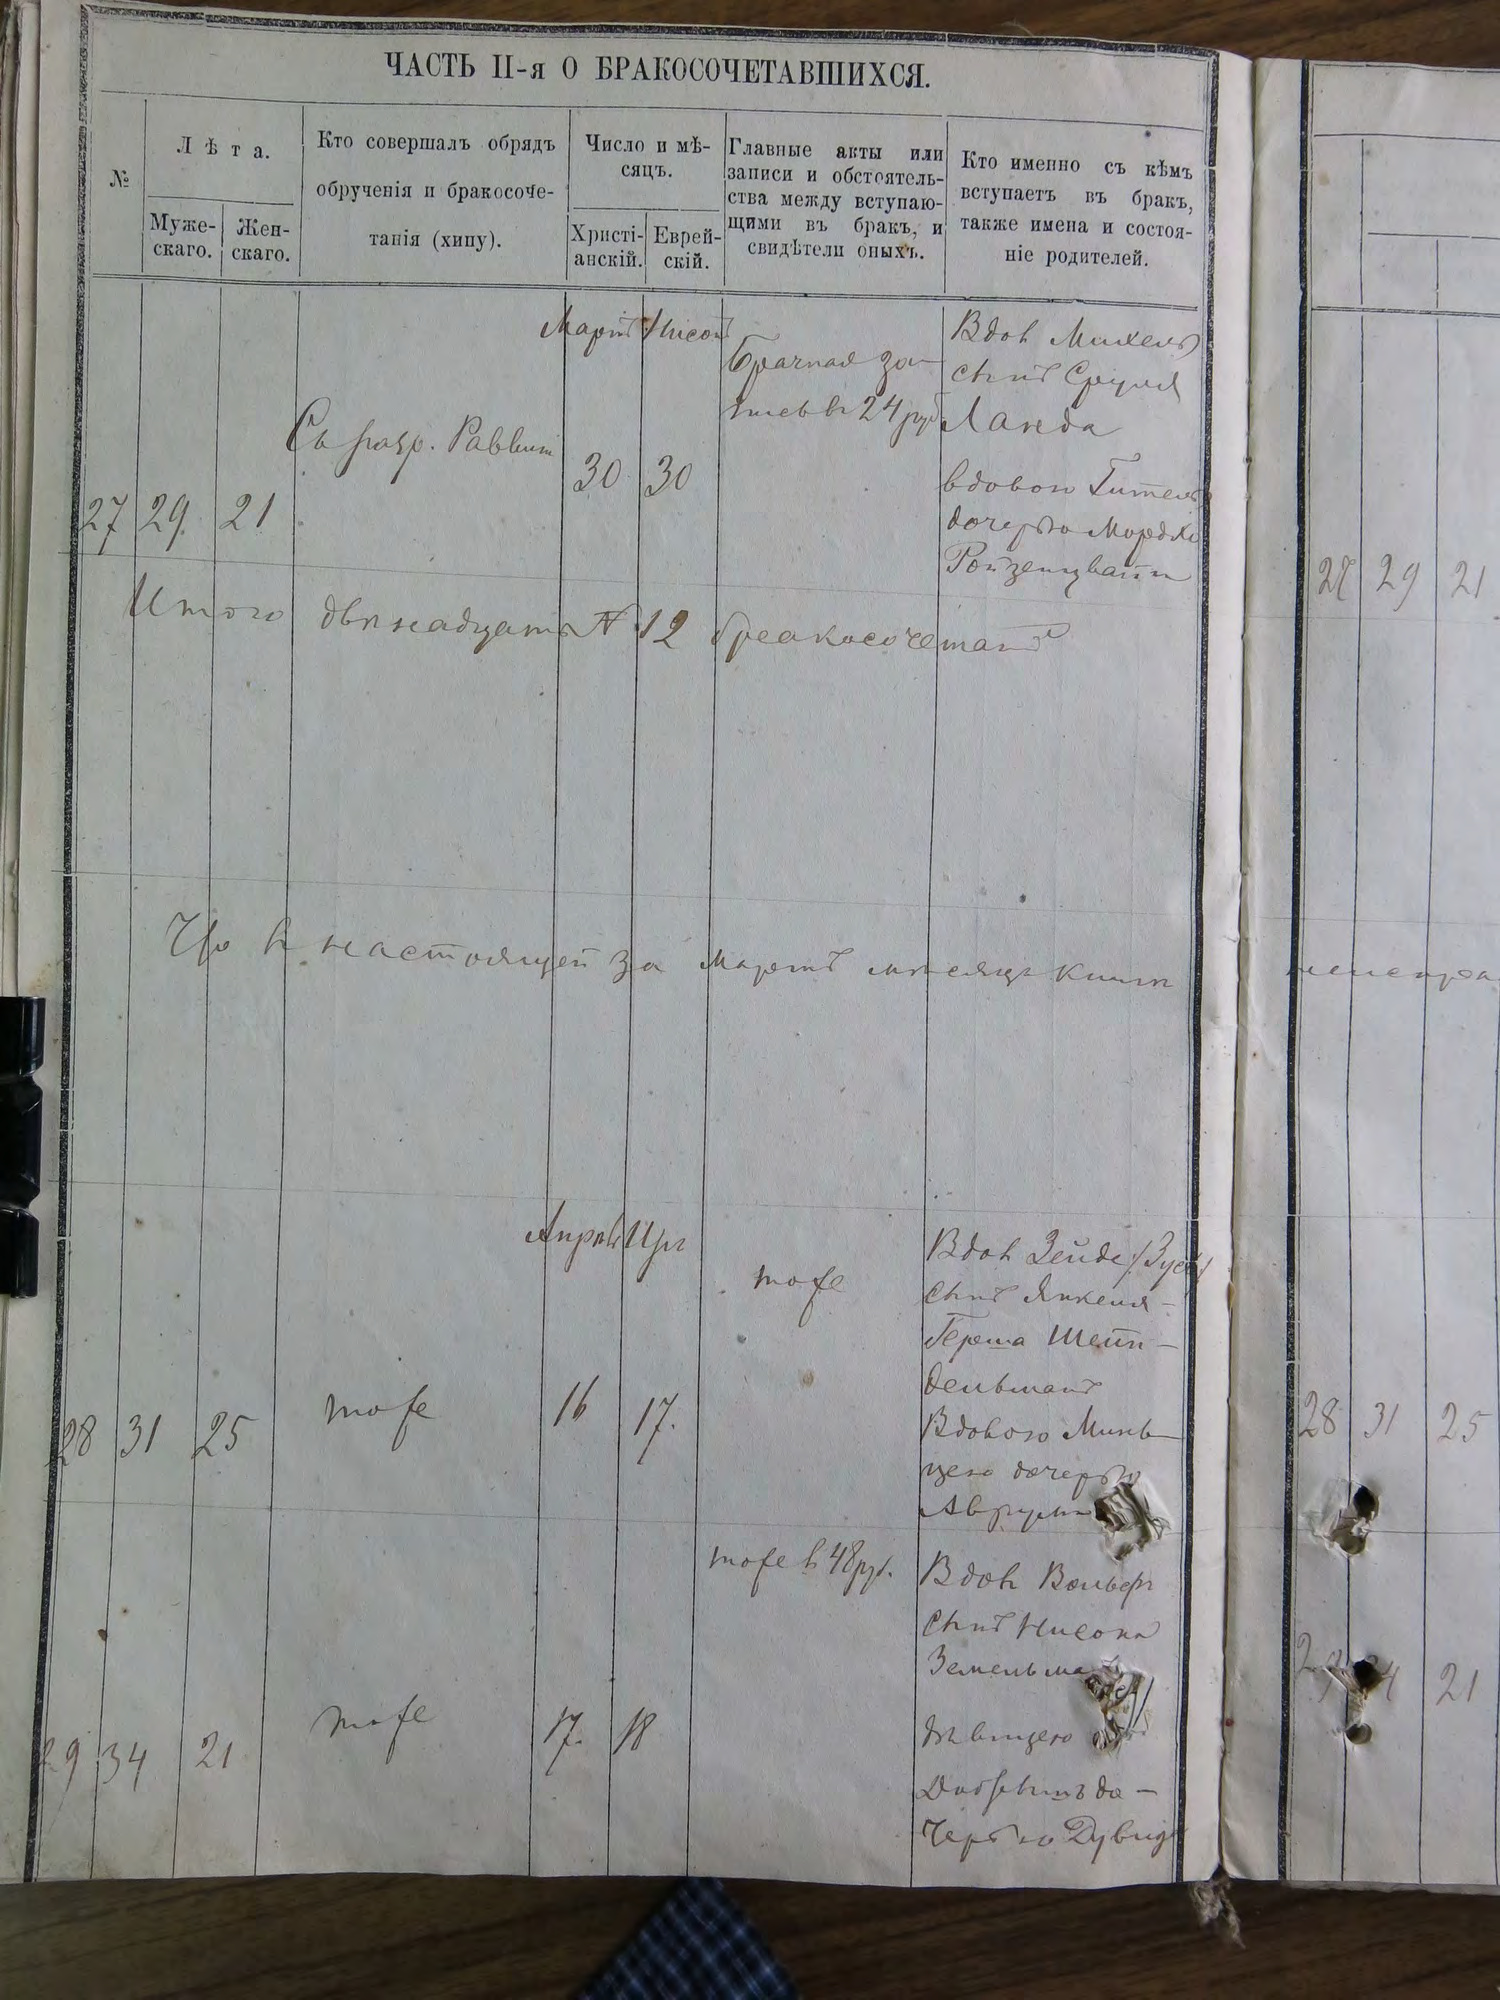 ЧАСТЬ II-я О БРАКОСОЧЕТАВШИХСЯ.
№
Лѣта.
Муже-
скаго.
Жен-
скаго.
Кто совершалъ обрядъ
обрученія и бракосоче-
танія (хипу).
Число и мѣ-
сяцъ.
Христі-
анскій.
Еврей-
скій.
Главные акты или
записи и обстоятель-
ства между вступаю-
щими въ бракъ, и
свидѣтели оныхъ.
Кто именно съ кѣмъ
вступаетъ въ бракъ,
также имена и состоя-
ніе родителей.
27 29 21
Съ разр. Раввин
Мартъ Нисонъ
30 30
Брачная за-
пись в 24 руб
Вдов Михель
сынъ Сруля
Ланда
вдовою Гитель
дочерью Мордки
Ройзенцвайга
Итого двѣнадцать № 12 бракосочетан
Что в настоящей за Мартъ мѣсяцъ книги
28 31 25
тоже
Апрѣль Ияр
16 17.
тоже
Вдов Зейде /Зусь/
сынъ Янкеля-
Герша Шейн-
дельманъ
Вдовою Минь-
цею дочерью
Аврума
29 34 21
тоже
17. 18
тоже в 48 ру.
Вдов Вольф
сынъ Нисона
Земельма
дѣвицею
Добрышъ до-
черью Дувид
27 29 21
28 31 25
21